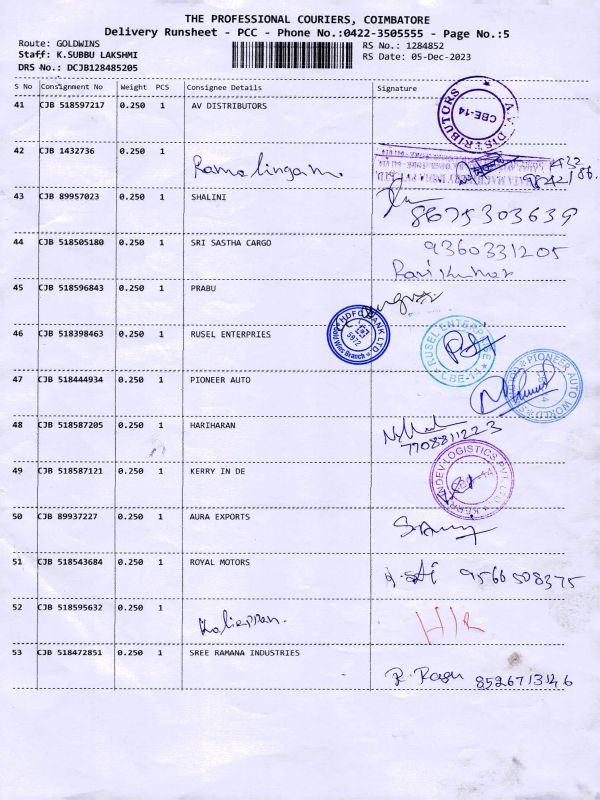 THE PROFESSIONAL COURIERS, COIMBATORE
Delivery Runsheet - PCC - Phone No.:0422-3505555 - Page No.:5
Route: GOLDWINS
RS No.: 1284852
Staff: K.SUBBU LAKSHMI
RS Date: 05-Dec-2023
DRS No.: DCJB128485205
S No Consignment No Weight PCS Consignee Details Signature
41 CJB 518597217 0.250 1 AV DISTRIBUTORS
A.V. DISTRIBUTORS CBE-14
42 CJB 1432736 0.250 1 Ramalingam.
43 CJB 89957023 0.250 1 SHALINI
8675303639
44 CJB 518505180 0.250 1 SRI SASTHA CARGO 9360331205
Ravikumar
45 CJB 518596843 0.250 1 PRABU
HDFC BANK LTD. 5972 Branch
46 CJB 518398463 0.250 1 RUSEL ENTERPRIES
RUSEL ENTERPRISE CBE-14
47 CJB 518444934 0.250 1 PIONEER AUTO
PIONEER AUTO WORLD
48 CJB 518587205 0.250 1 HARIHARAN
7708811223
49 CJB 518587121 0.250 1 KERRY IN DE
KERRY INDEV LOGISTICS PVT
50 CJB 89937227 0.250 1 AURA EXPORTS
51 CJB 518543684 0.250 1 ROYAL MOTORS
9566508375
52 CJB 518595632 0.250 1 Kaliappan. H/R
53 CJB 518472851 0.250 1 SREE RAMANA INDUSTRIES
R. Ragu 8526713146